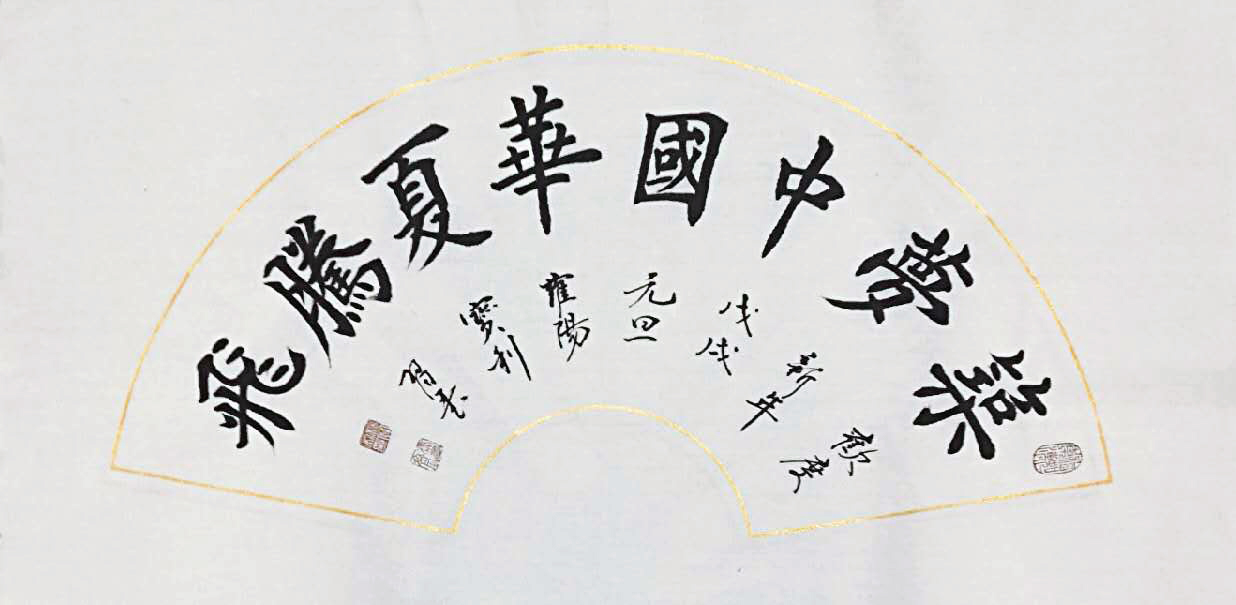 築夢中國華夏騰飛
歡度
新年
戊戌
元旦
雍陽
寶利